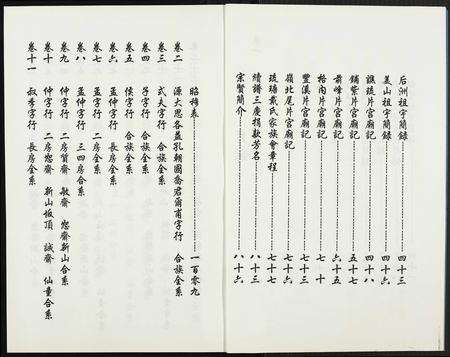 后洲祖宇簡錄……四十三
美山祖宇簡錄……四十六
譙琉片宮廟記……四十八
鋪紫片宮廟記……五十七
前峰片宮廟記……六十五
格內片宮廟記……七十
豐溪片宮廟記……七十三
嶺北尾片宮廟記……七十六
琉塘戴氏家族會章程……七十七
續譜三慶捐款芳名……八十三
宗賢簡介……八十六
昭穆卷……一百零九
卷二 源大思各孟孔朝國喬君爾甫字行 合族全系
卷三 式夫字行 合族全系
卷四 子字行 合族全系
卷五 侯字行 合族全系
卷六 孟仲字行 長房全系
卷七 孟字行 二房全系
卷八 孟仲字行 三四房合系
卷九 仲字行 二房質齋 敏齋 恕齋新山合系
卷十 仲字行 二房恕齋 新山坂頂 誠齋 仙童合系
卷十一 叔季字行 長房全系